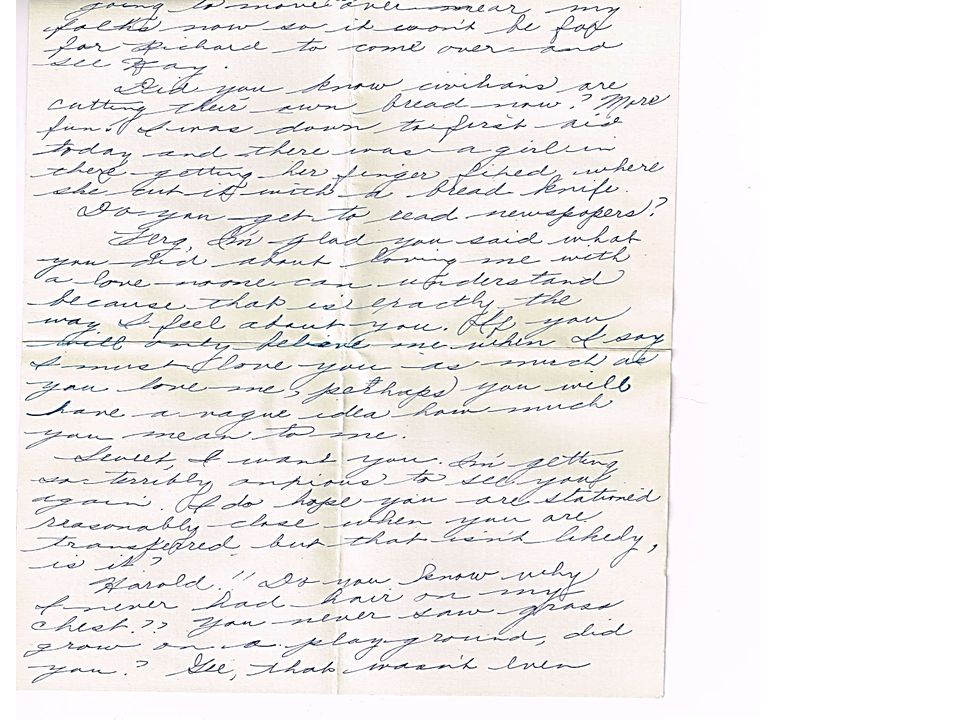 going to move over near my
folks now so it won't be far
for Richard to come over and
see Kay.
Did you know civilians are
cutting their own bread now? More
fun! I was down to first aid
today and there was a girl in
there getting her finger fixed where
she cut it with a bread knife.
Do you get to read newspapers?
Ferg, I'm glad you said what
you did about loving me with
a love no one can understand
because that is exactly the
way I feel about you. If you
will only believe me when I say
I must love you as much as
you love me, perhaps you will
have a vague idea how much
you mean to me.
Sweet, I want you. I'm getting
so terribly anxious to see you
again. I do hope you are stationed
reasonably close when you are
transferred but that isn't likely,
is it?
Harold!! Do you know why
I never had hair on my
chest?? You never saw grass
grow on a playground, did
you? Gee, that wasn't even